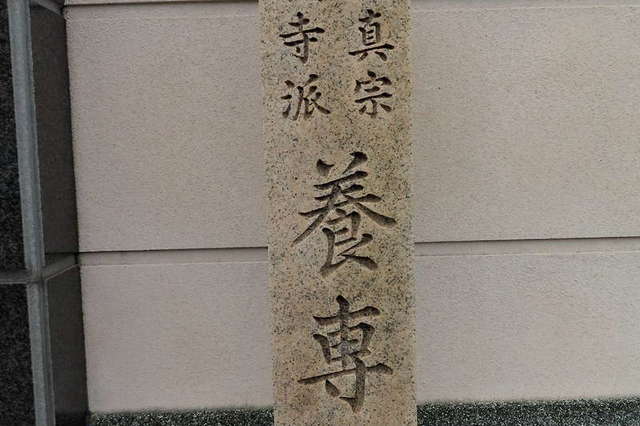 真宗
寺派
養專